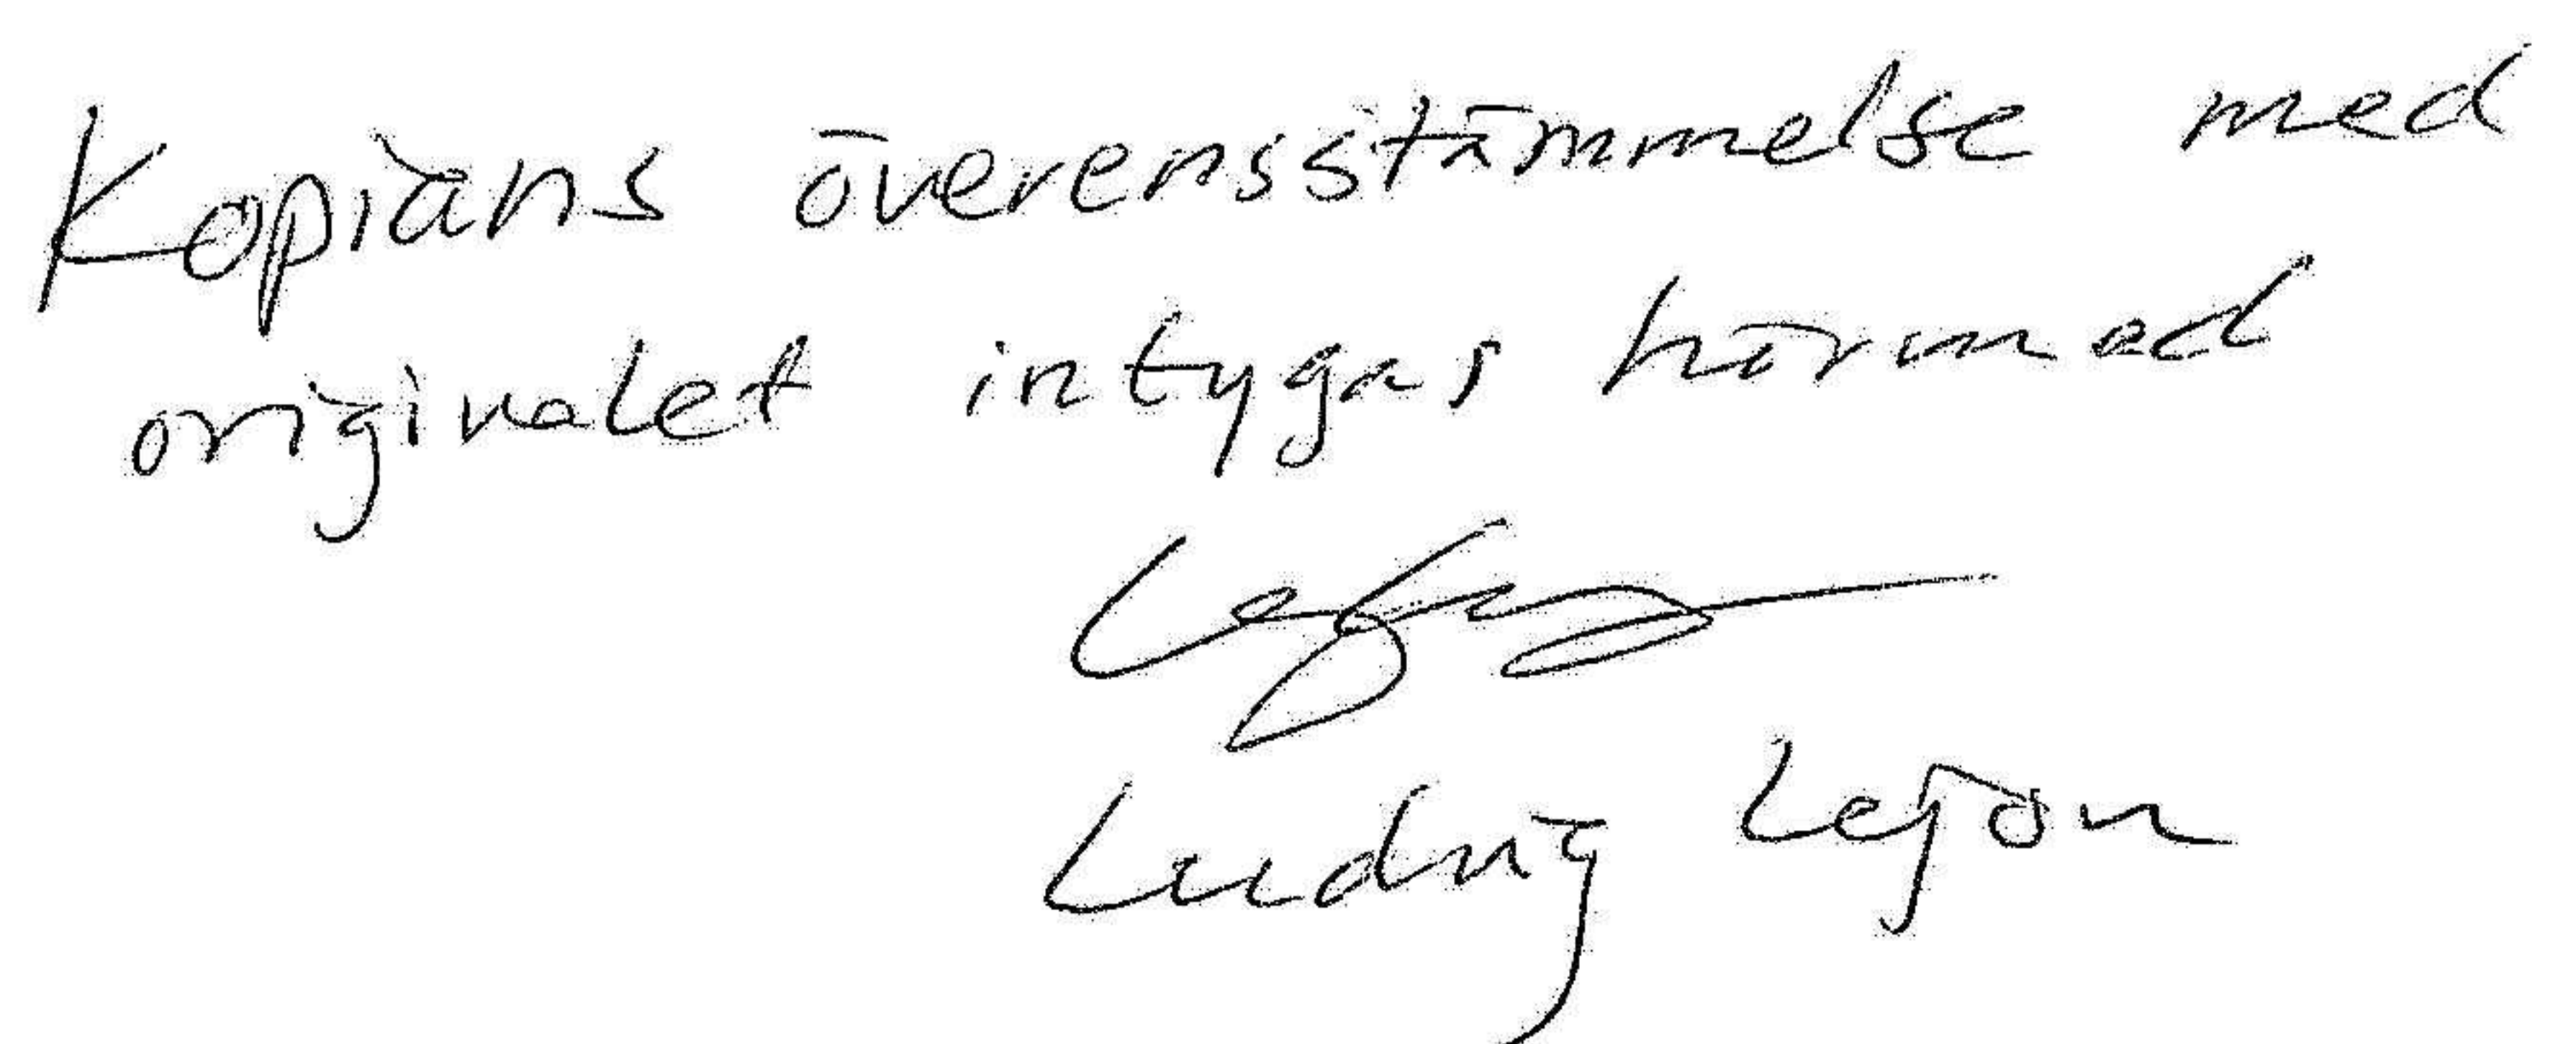 Kopians överensstämmelse med
originalet intygas härmed
Ludvig Lejon